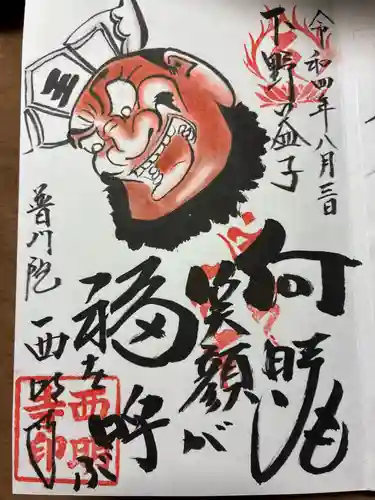 令和四年八月三日
下野益子
何時も
笑顔が
福を呼ぶ
普門院
西明寺
西明寺印